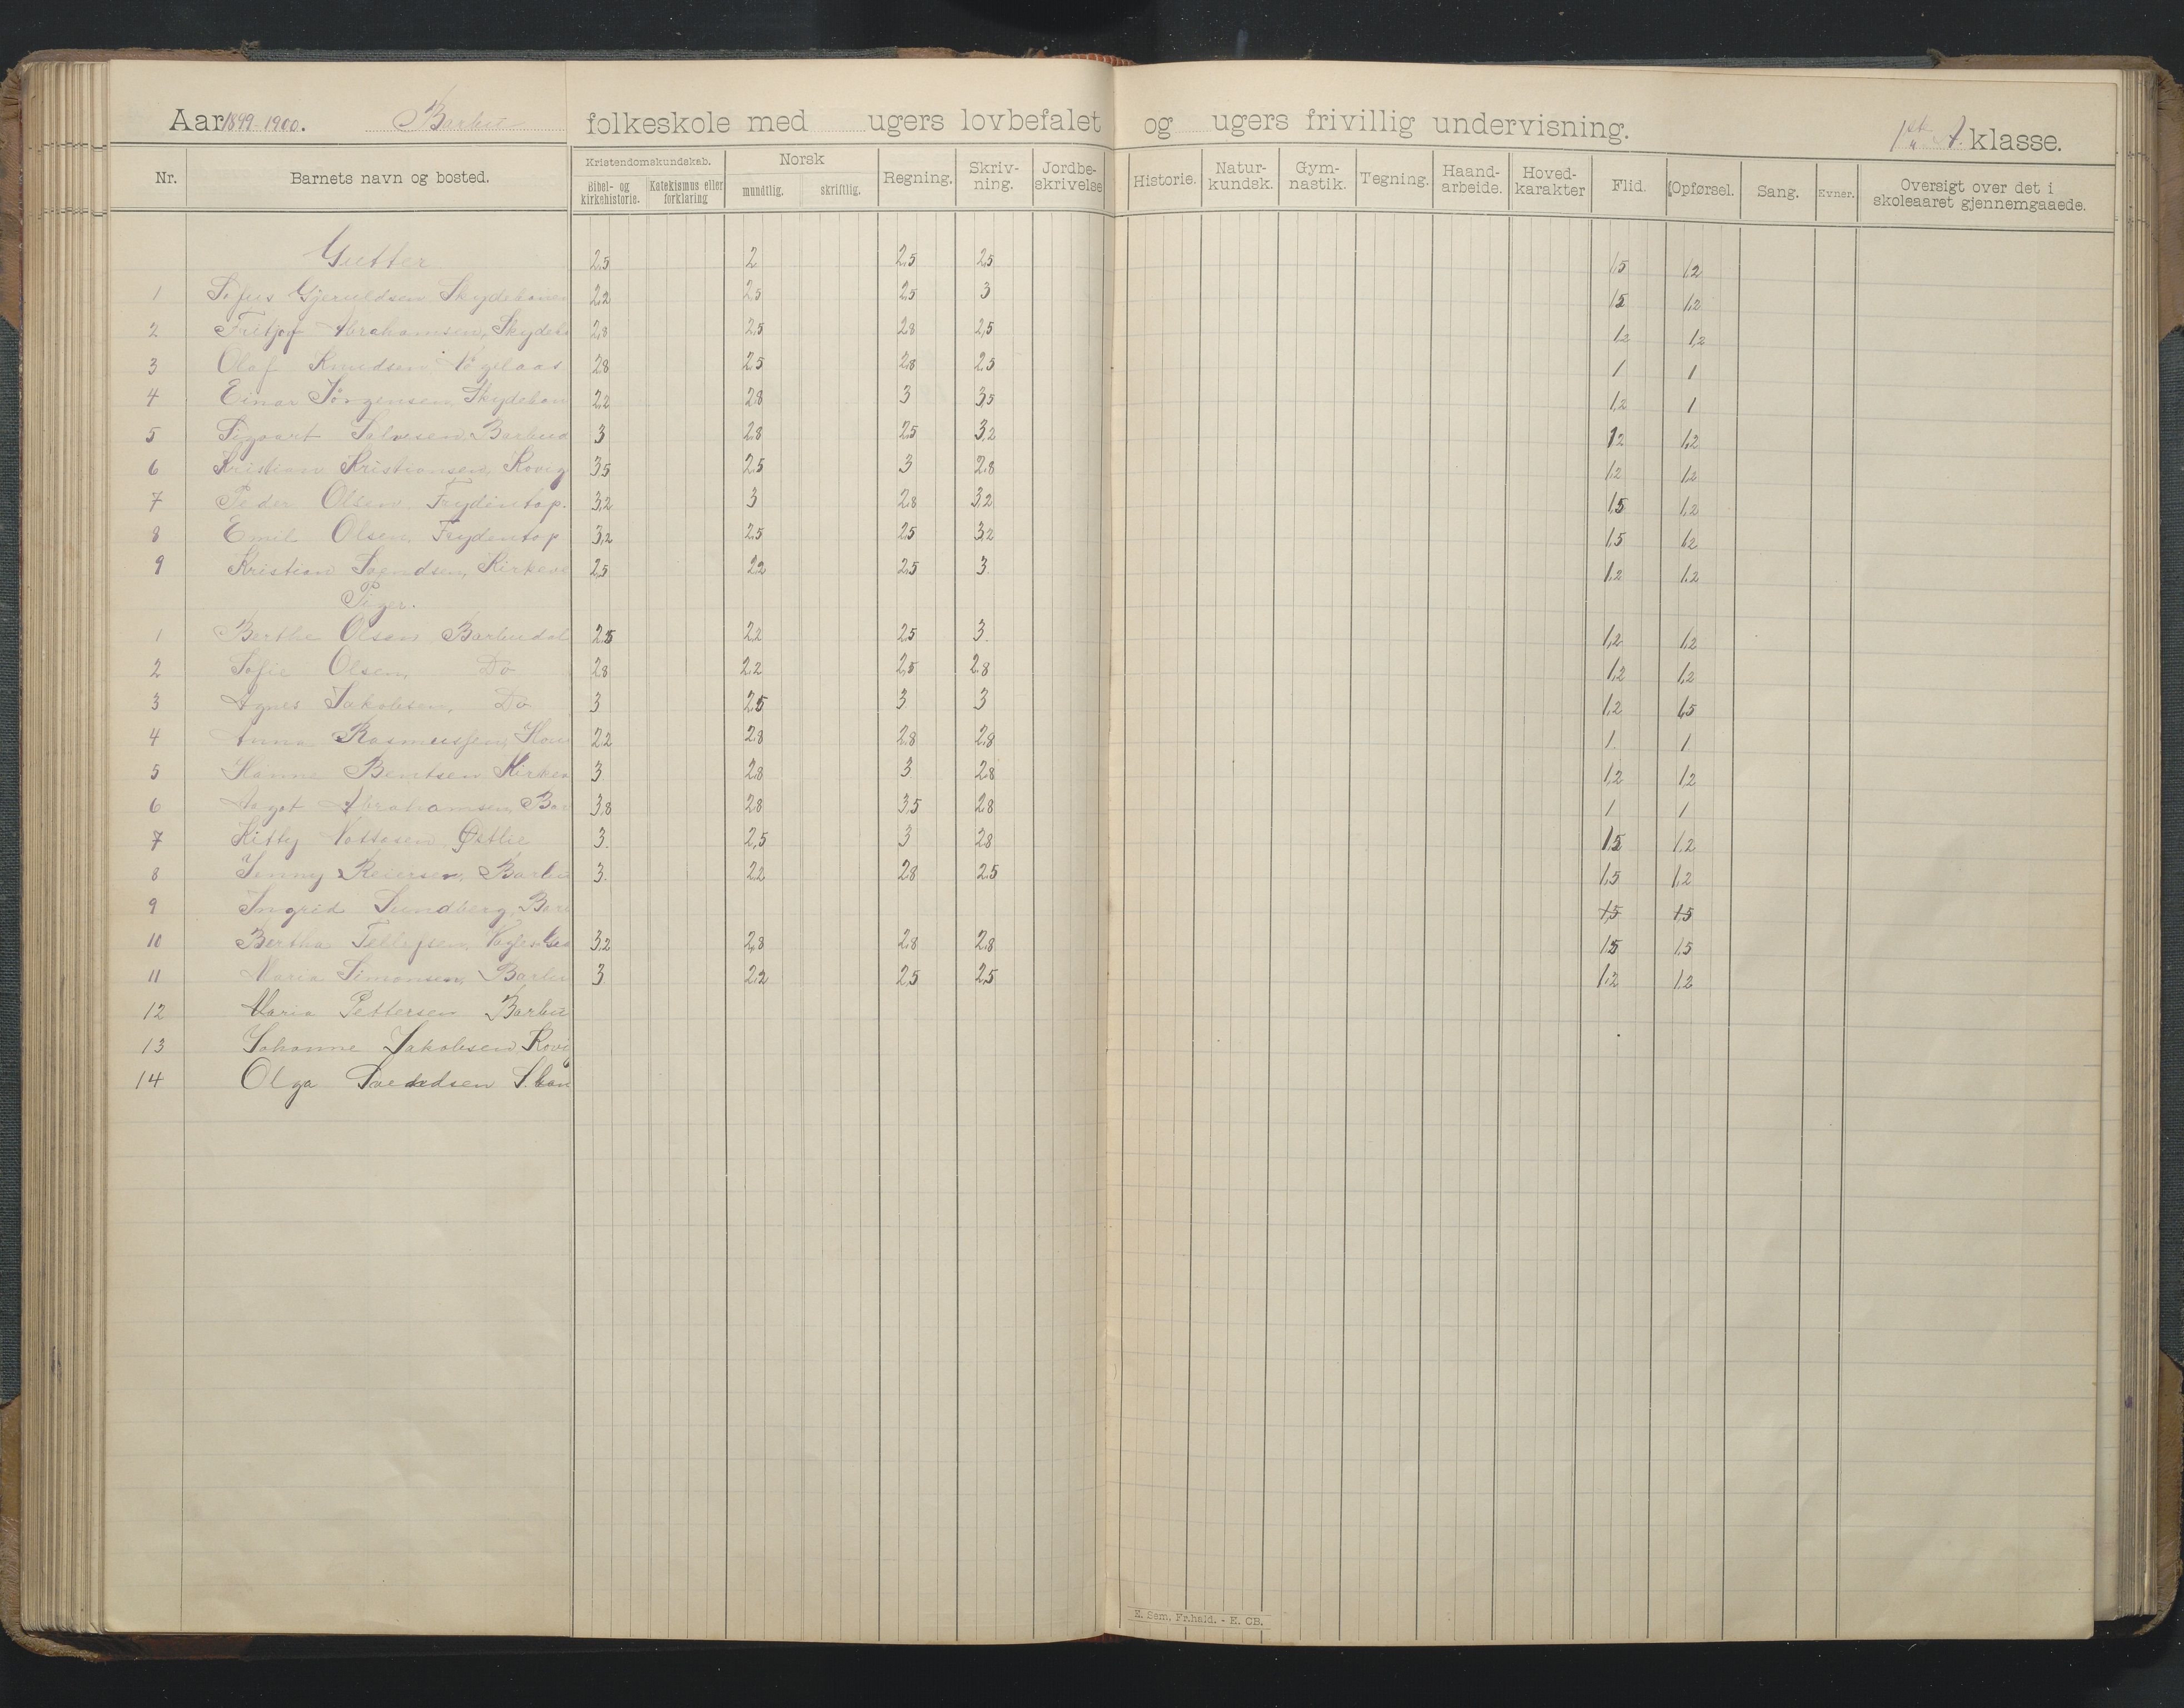 Aar 1899-1900. Barbu folkeskole med ugers lovbefalet og ugers frivillig undervisning. 1ste A. klasse.
Nr. Barnets navn og bosted. Kristendomskundskab. Bibel- og kirkehistorie. Katekismus eller forklaring Norsk mundtlig. skriftlig. Regning. Skriv-ning. Jordbe-skrivelse Historie. Natur-kundsk. Gym-nastik. Tegning. Haand-arbeide. Hoved-karakter Flid. Opførsel. Sang. Evner. Oversigt over det i skoleaaret gjennemgaaede.
Gutter 2,5 2 2,5 2,5 1,5 1,2
1 Sofus Gjeruldsen, Skydebanen 2,2 2,5 2,5 3 1,5 1,2
2 Fritjof Abrahamsen, Skydeb 2,8 2,5 2,8 2,5 1,2 1,2
3 Olaf Knudsen 2,8 2,5 2,8 2,5 1 1
4 Einar Jörgensen, Skydeban 2,2 2,8 3 3,5 1,2 1
5 Sigvart Salvesen, Barbud 3 2,8 2,5 3,2 1,2 1,2
6 Kristian Kristiansen, Rovig 3,5 2,5 3 2,8 1,2 1,2
7 Peder Olsen, Frydentop. 3,2 3 2,8 3,2 1,5 1,2
8 Emil Olsen, Frydentop 3,2 2,5 2,5 3,2 1,5 1,2
9 Kristian Svendsen, Kirkeve 2,5 2,2 2,5 3. 1,2 1,2
Piger.
1 Berthe Olsen, Barbudal 2,5 2,2 2,5 3. 1,2 1,2
2 Sofie Olsen, Do 2,8 2,2 2,5 2,8 1,2 1,2
3 Agnes Jakobsen, Do 3 2,5 3 3 1,2 1,5
4 Anna Rasmussen, 2,2 2,8 2,8 2,8 1. 1.
5 Hanne Bentsen Kirkev 3. 2,8 3. 2,8 1,2 1,2
6 Aagot Abrahamsen, Bar 3,8 2,8 3,5 2,8 1 1
7 Kitty Østlie 3. 2,5 3 2,8 1,5 1,2
8 Jenny Reiersen, Barbu 3. 2,2 2,8 2,5 1,5 1,2
9 Ingrid Sundberg, Bar 1,5 1,5
10 Bertha Tellefsen, 3,2 2,8 2,8 2,8 1,5 1,5
11 Maria Simonsen, Barbu 3 2,2 2,5 2,5 1,2 1,2
12 Maria Pettersen Barbu
13 Johanne Jakobsen, Rovig
14 Olga Svendsen S.ban
E. Sem, Fr.hald. - E. CB.